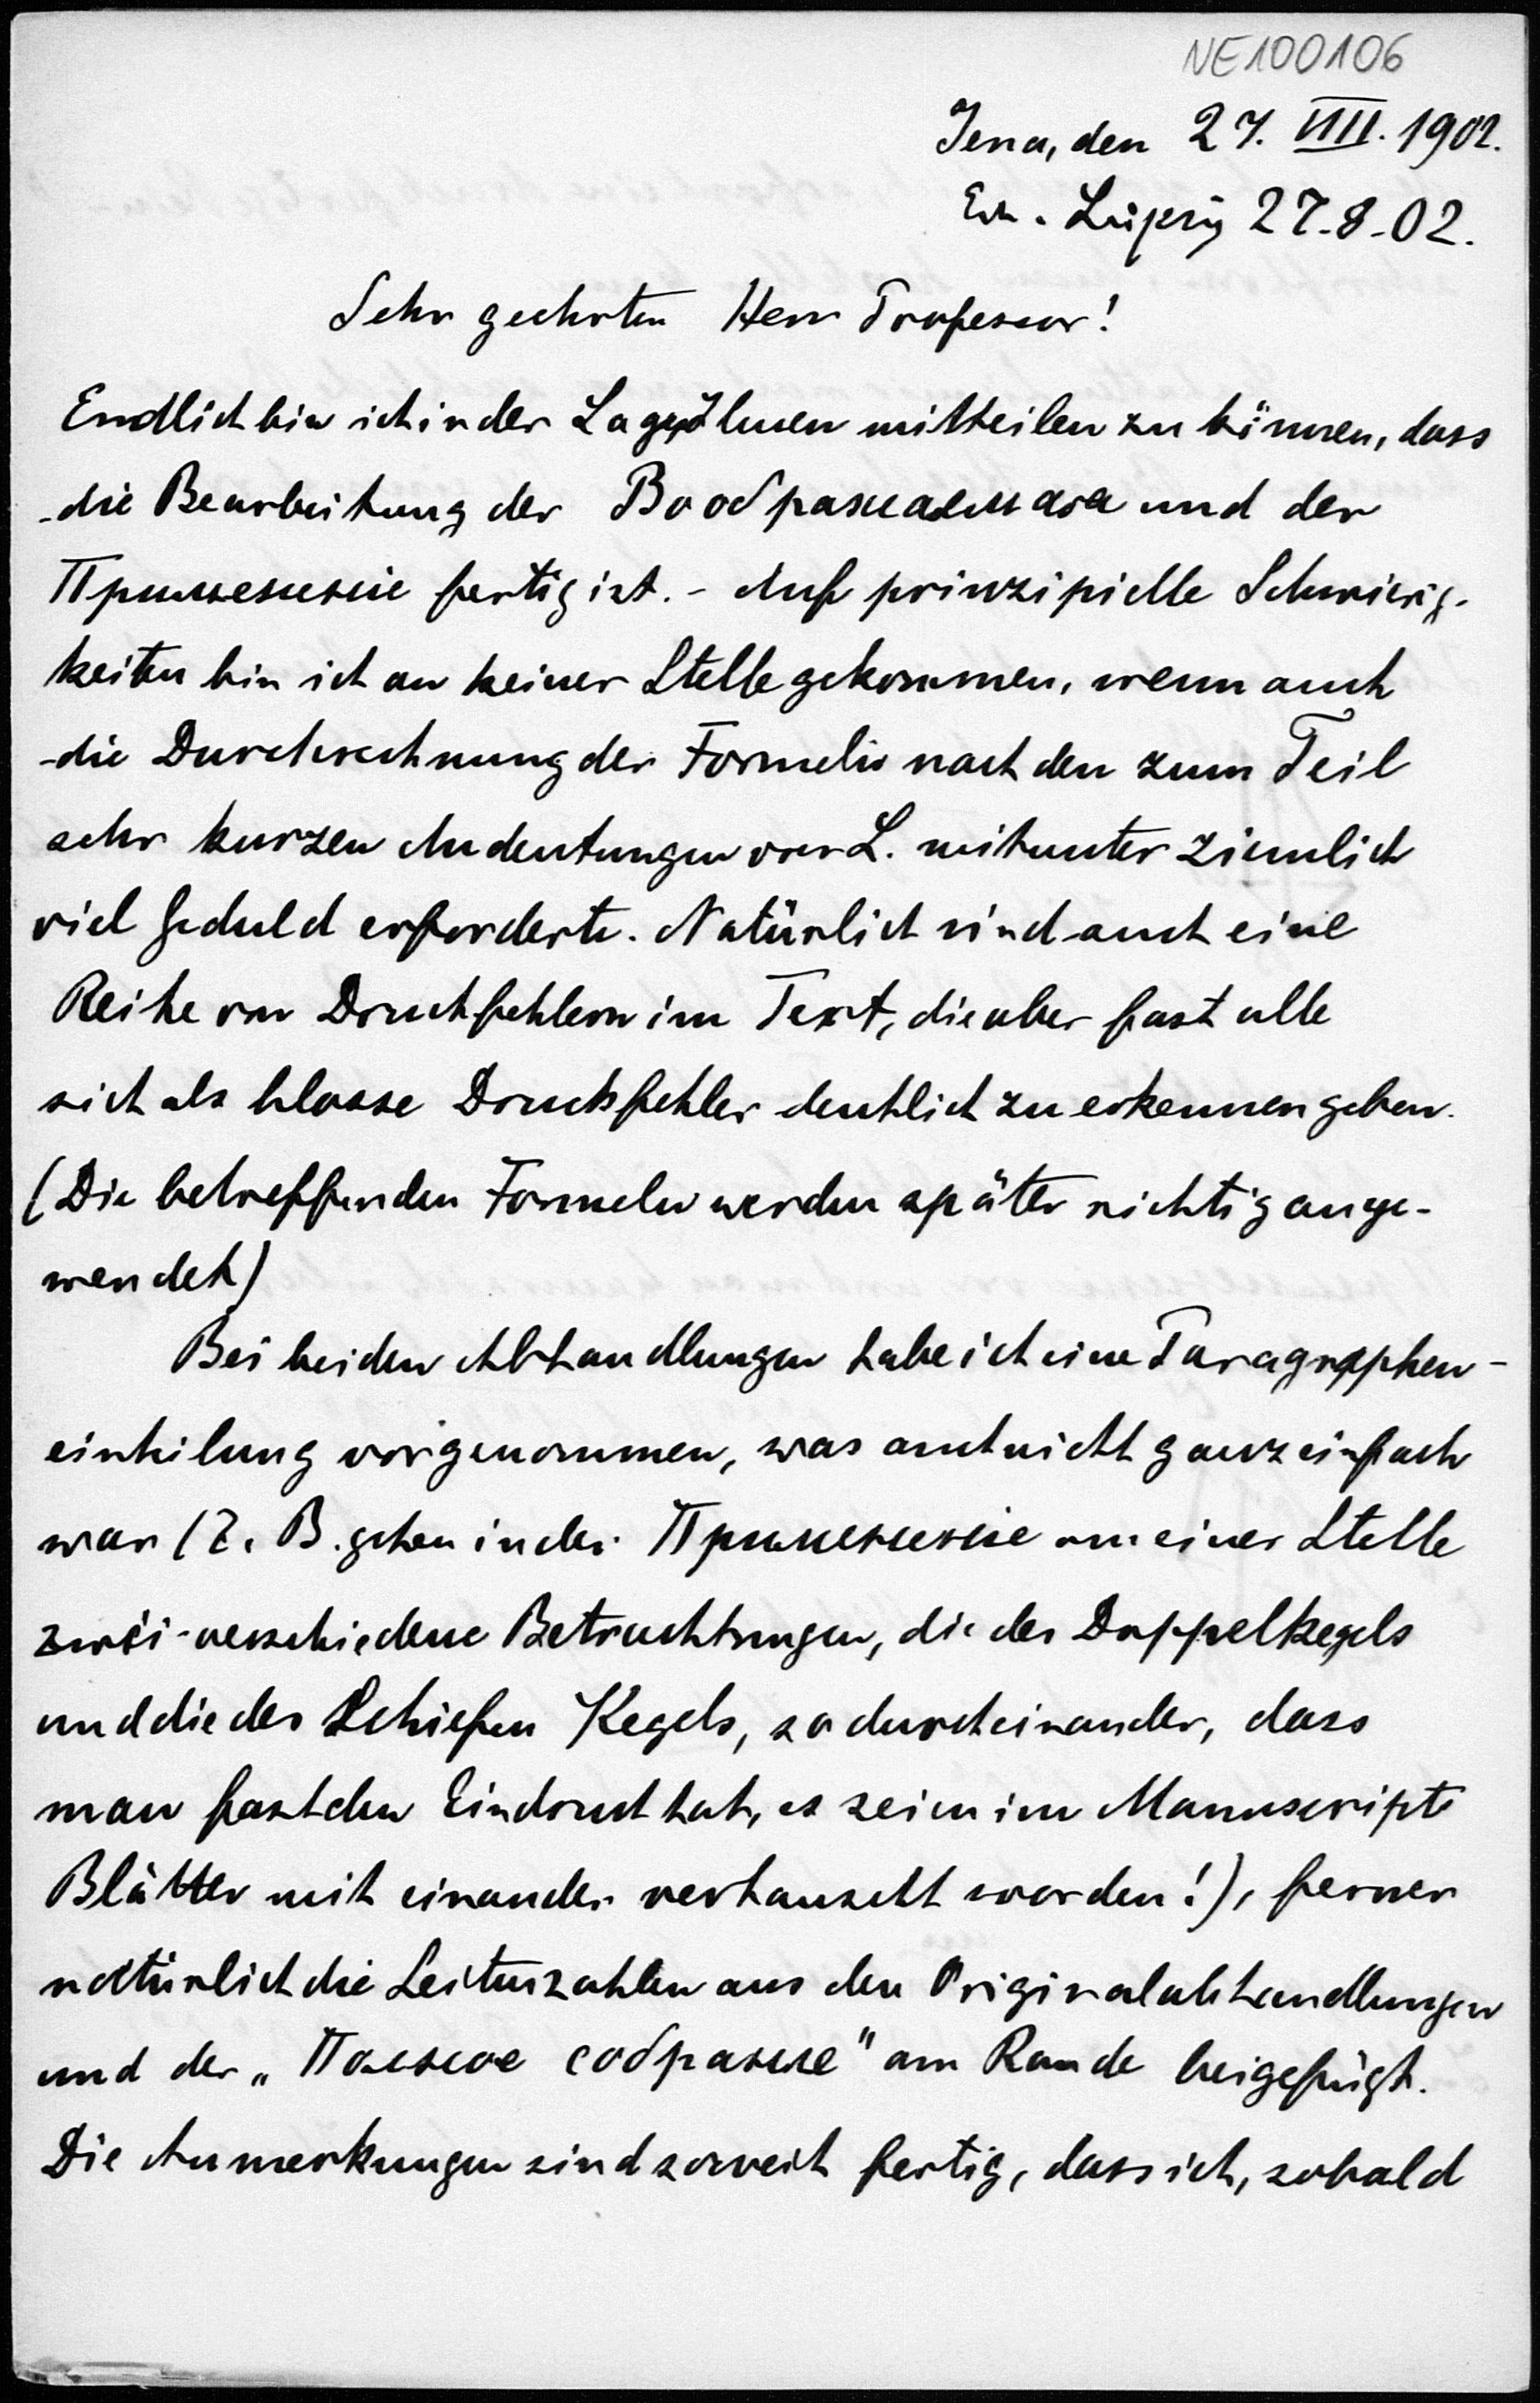 NE100106
Jena, den 27. VIII. 1902.
Leipzig 27-8-02.
Sehr geehrten Herr Professor!
Endlich bin ich in der Lage, Ihnen mitteilen zu können, dass
die Bearbeitung der und der
fertig ist. - Auf prinzipielle Schwierig-
keiten bin ich an keiner Stelle gekommen, wenn auch
die Durchrechnung der Formeln nach den zum Teil
sehr kurzen Andeutungen von L. mitunter ziemlich
viel Geduld erforderte. Natürlich sind auch eine
Reihe von Druckfehlern im Text, die aber fast alle
sich als blosse Druckfehler deutlich zu erkennen geben.
(Die betreffenden Formeln werden später richtig ange-
wendet)
Bei beiden Abhandlungen habe ich eine Paragraphen-
einteilung vorgenommen, was auch nicht ganz einfach
war (Z. B. gehen in der an einer Stelle
zwei verschiedene Betrachtungen, die des Doppelkegels
und die des Schiefen Kegels, so durcheinander, dass
man fast den Eindruck hat, es seien im Manuscripte
Blätter mit einander vertauscht worden!), ferner
natürlich die Seitenzahlen aus den Originalabhandlungen
und der „Полное собрание" am Rande beigefügt.
Die Anmerkungen sind soweit fertig, dass ich, sobald